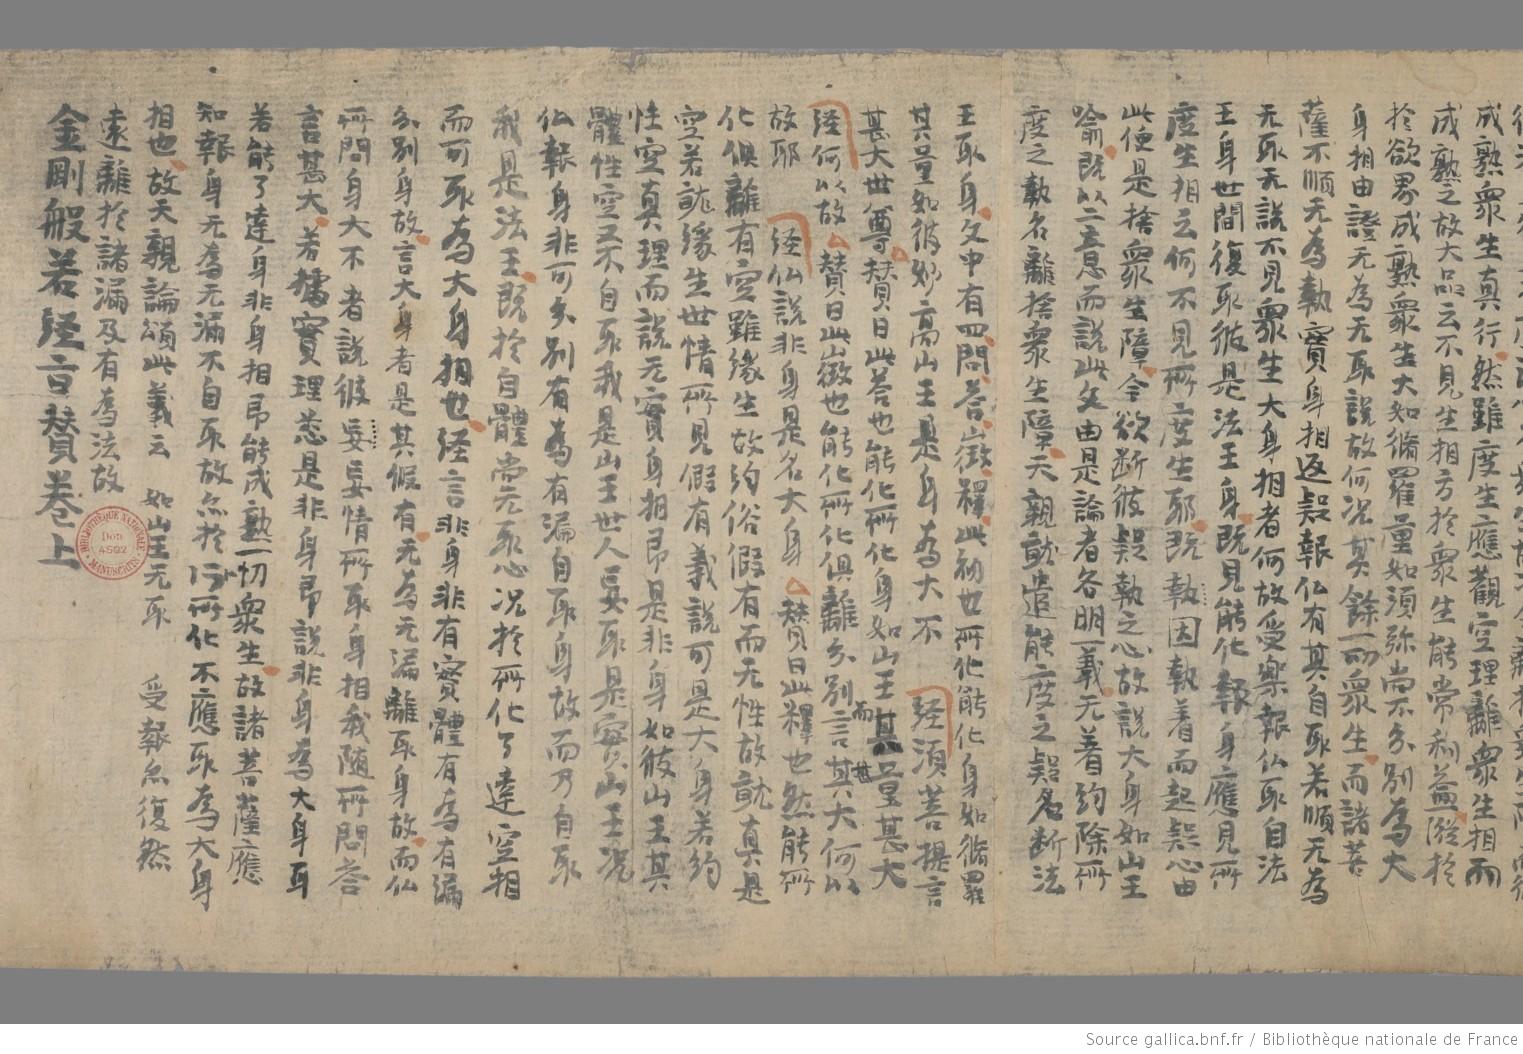 成熟衆生真行然雖度生應觀空理離衆生相而
成熟之故大品云不見生相方於衆生能常利益證於
於欲界成熟衆生大如脩羅量如須弥尚不分別為大
身相由證无為无取說故何況其餘一切衆生而諸菩
薩不順无為執實身相返疑報仏有其自取若順无為
无取无說不見衆生大身相者何故受樂報仏取自法
王身世間復取彼是法王身既見能化報身應見所
度生相云何不見所度生耶既執因執着而起疑心由
此便是捨衆生障今欲斷彼疑執之心故說大身如山王
喻既以二意而說此文由是論者各明一義无着約除所
度之執名離捨衆生障天親就遣能度之疑名斷法
王取身文中有四問荅徵釋此初也所化能化身如脩羅
其量如彼妙高山王是身為大不 經須菩提言
甚大世尊賛曰此荅也能化所化身如山王其量甚大
而甚
經何以故 賛曰此徵也能化所化俱離分別言其大何以
故耶 經仏說非身是名大身 賛曰此釋也然能所
化俱離有空雖緣生故約俗假有而无性故就真是
空若就緣生世情所見假有義說可是大身若約
性空真理而說无實身相即是非身如彼山王其
體性空又不自取我是山王世人妄取是實山王況
仏報身非可分別有為有漏自取身故而乃自取
我是法王既於自體尚无取心況於所化了達空相
而可取為大身相也經言非身非有實體有為有漏
分別身故言大身者是其假有无為无漏離取身故而仏
所問身大不者說彼妄妄情所取身相我隨所問荅
言甚大若據實理悉是非身即說非身為大身耳
若能了達身非身相即能成熟一切衆生故諸菩薩應
知報身无為无漏不自取故亦於所化不應取為大身
相也故天親論頌此義云 如山王无取 受報亦復然
遠離於諸漏及有為法故
金剛般若経言賛卷上
BIBLIOTHÈQUE NATIONALE
Don
4502
MANUSCRITS
Source gallica.bnf.fr / Bibliothèque nationale de France